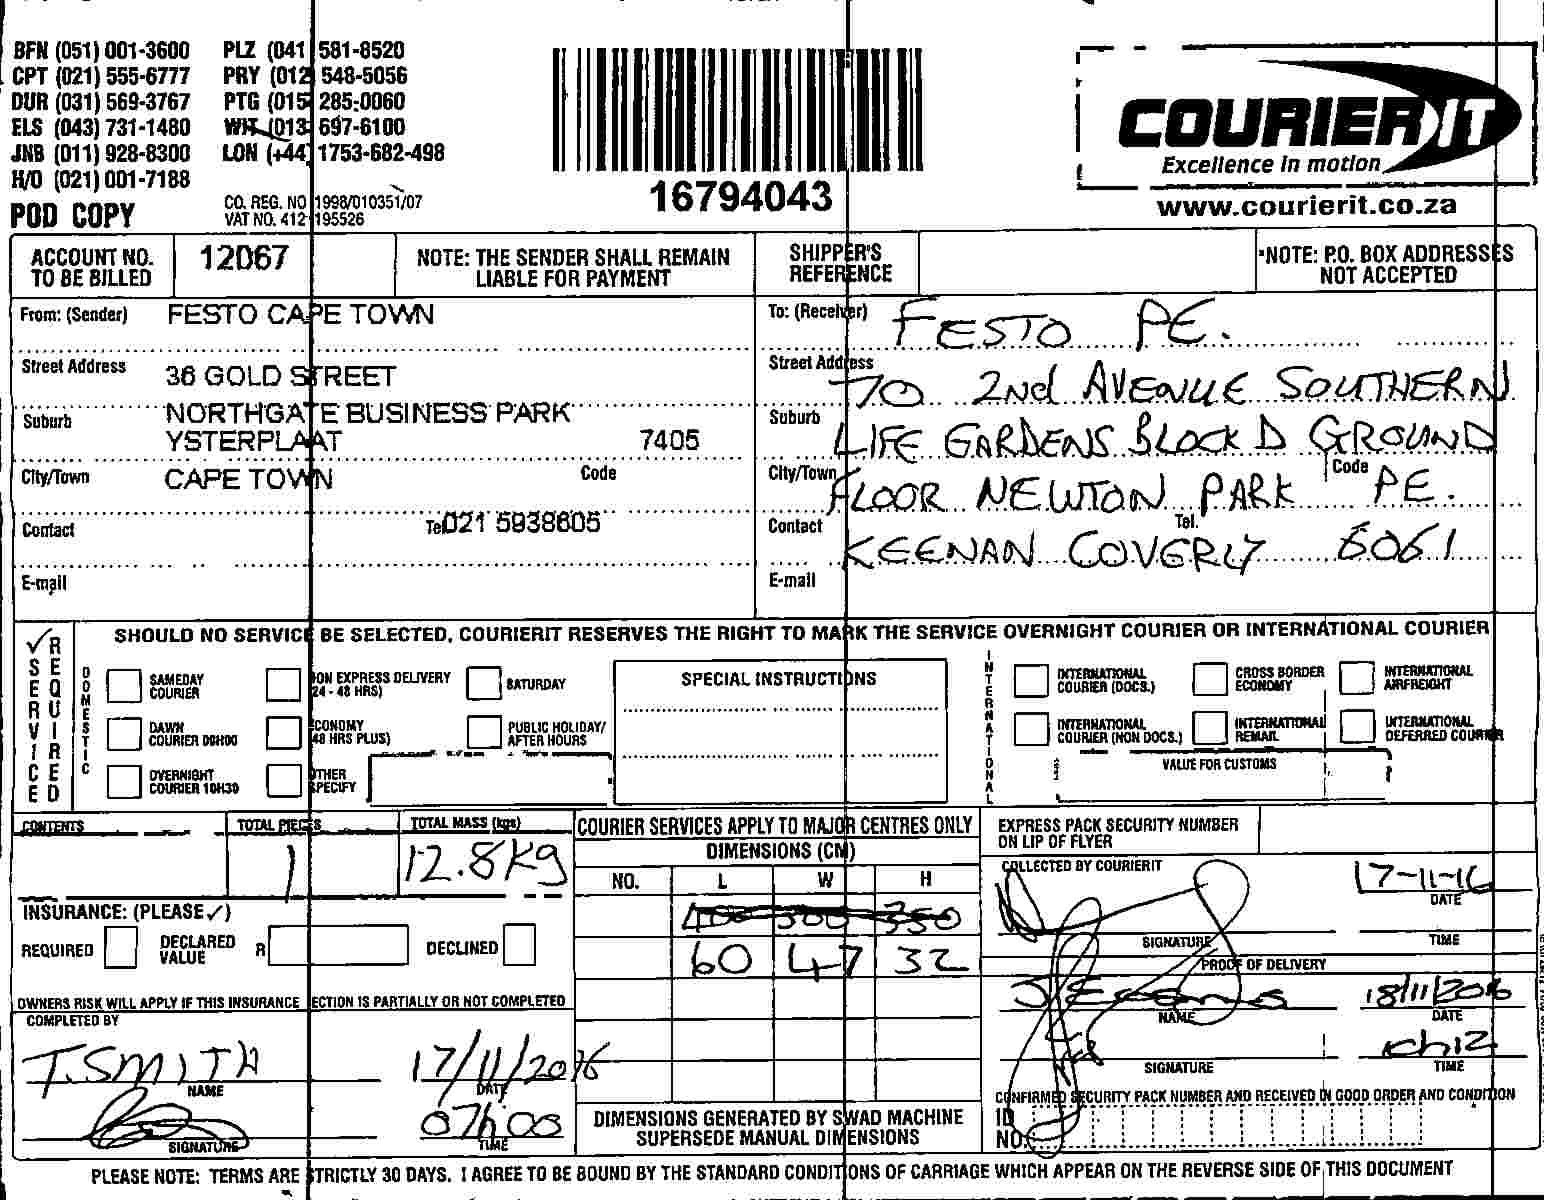 BFN (051) 001-3600 PLZ (041 581-8520
CPT (021) 555-6777 PRY (012 548-5056
DUR (031) 569-3767 PTG (015 285-0060
ELS (043) 731-1480 WIT (013 697-6100
JNB (011) 928-8300 LON (+44) 1753-682-498
H/O (021) 001-7188
POD COPY
CO. REG. NO 1998/010351/07
VAT NO. 412 195526
16794043
COURIER IT
Excellence in motion
www.courierit.co.za
ACCOUNT NO. TO BE BILLED
12067
NOTE: THE SENDER SHALL REMAIN LIABLE FOR PAYMENT
SHIPPER'S REFERENCE
*NOTE: P.O. BOX ADDRESSES NOT ACCEPTED
From: (Sender) FESTO CAPE TOWN
Street Address 36 GOLD STREET
Suburb NORTHGATE BUSINESS PARK
YSTERPLAAT 7405
City/Town CAPE TOWN Code
Contact Tel 021 5938605
E-mail
To: (Receiver) FESTO PE.
Street Address 70 2nd AVENUE SOUTHERN
Suburb LIFE GARDENS BLOCK D GROUND
City/Town FLOOR NEWTON PARK Code PE.
Contact KEENAN COVERLY Tel. 6061
E-mail
✓ SERVICE REQUIRED
SHOULD NO SERVICE BE SELECTED, COURIERIT RESERVES THE RIGHT TO MARK THE SERVICE OVERNIGHT COURIER OR INTERNATIONAL COURIER
DOMESTIC
SAMEDAY COURIER
ON EXPRESS DELIVERY 24 - 48 HRS)
SATURDAY
DAWN COURIER 09H00
CONOMY 48 HRS PLUS)
PUBLIC HOLIDAY/ AFTER HOURS
OVERNIGHT COURIER 10H30
OTHER SPECIFY
SPECIAL INSTRUCTIONS
INTERNATIONAL
INTERNATIONAL COURIER (DOCS.)
CROSS BORDER ECONOMY
INTERNATIONAL AIRFREIGHT
INTERNATIONAL COURIER (NON DOCS.)
INTERNATIONAL REMAIL
INTERNATIONAL DEFERRED COURIER
VALUE FOR CUSTOMS
CONTENTS
TOTAL PIECES
1
TOTAL MASS (kgs)
12.8kg
COURIER SERVICES APPLY TO MAJOR CENTRES ONLY
DIMENSIONS (CM)
NO. L W H
400 300 350
60 47 32
DIMENSIONS GENERATED BY SWAD MACHINE
SUPERSEDE MANUAL DIMENSIONS
INSURANCE: (PLEASE ✓)
REQUIRED DECLARED VALUE R DECLINED
OWNERS RISK WILL APPLY IF THIS INSURANCE ECTION IS PARTIALLY OR NOT COMPLETED
COMPLETED BY
T. SMITH 17/11/2016
NAME DATE
07h00
SIGNATURE TIME
EXPRESS PACK SECURITY NUMBER ON LIP OF FLYER
COLLECTED BY COURIERIT
17-11-16
DATE
SIGNATURE TIME
PROOF OF DELIVERY
18/11/2016
NAME DATE
SIGNATURE TIME
CONFIRMED SECURITY PACK NUMBER AND RECEIVED IN GOOD ORDER AND CONDITION
ID NO.
PLEASE NOTE: TERMS ARE STRICTLY 30 DAYS. I AGREE TO BE BOUND BY THE STANDARD CONDITIONS OF CARRIAGE WHICH APPEAR ON THE REVERSE SIDE OF THIS DOCUMENT